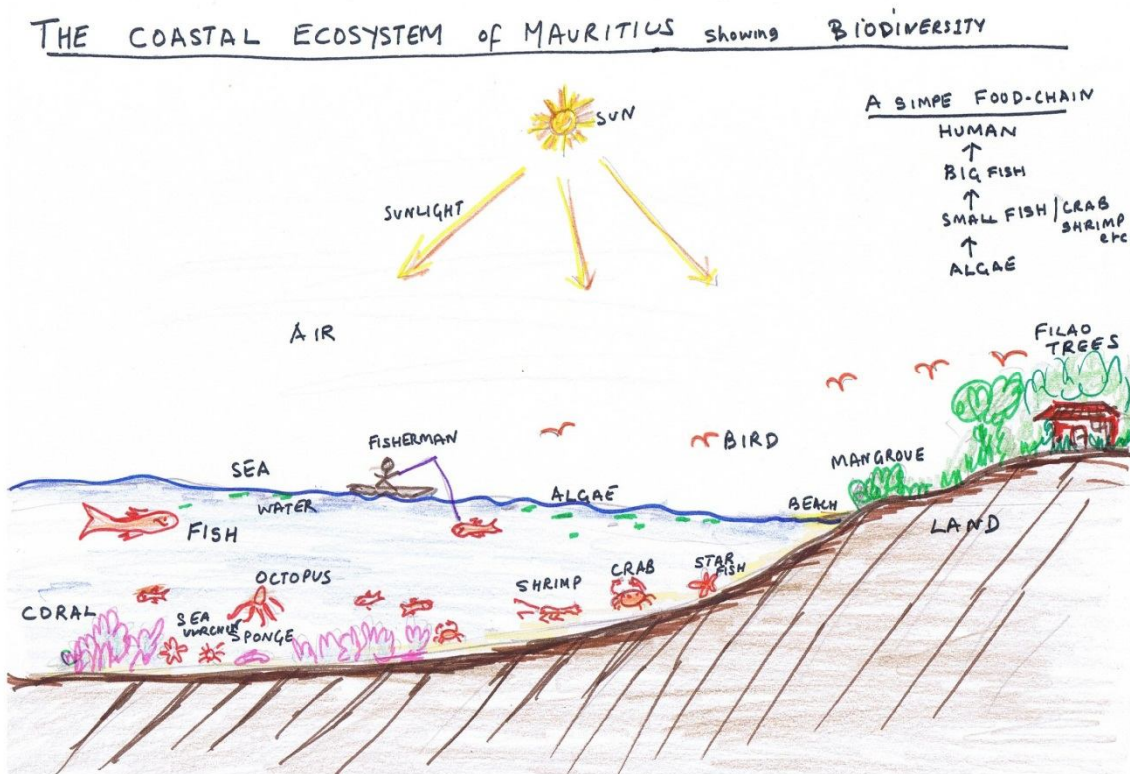 THE COASTAL ECOSYSTEM of MAURITIUS showing BIODIVERSITY
A SIMPE FOOD-CHAIN
HUMAN
BIG FISH
SMALL FISH / CRAB
SHRIMP
etc
ALGAE
SUN
SUNLIGHT
AIR
FILAO
TREES
BIRD
FISHERMAN
MANGROVE
SEA
WATER
ALGAE
BEACH
LAND
FISH
OCTOPUS
SHRIMP
CRAB
STAR
FISH
CORAL
SEA
UURCHIN
SPONGE